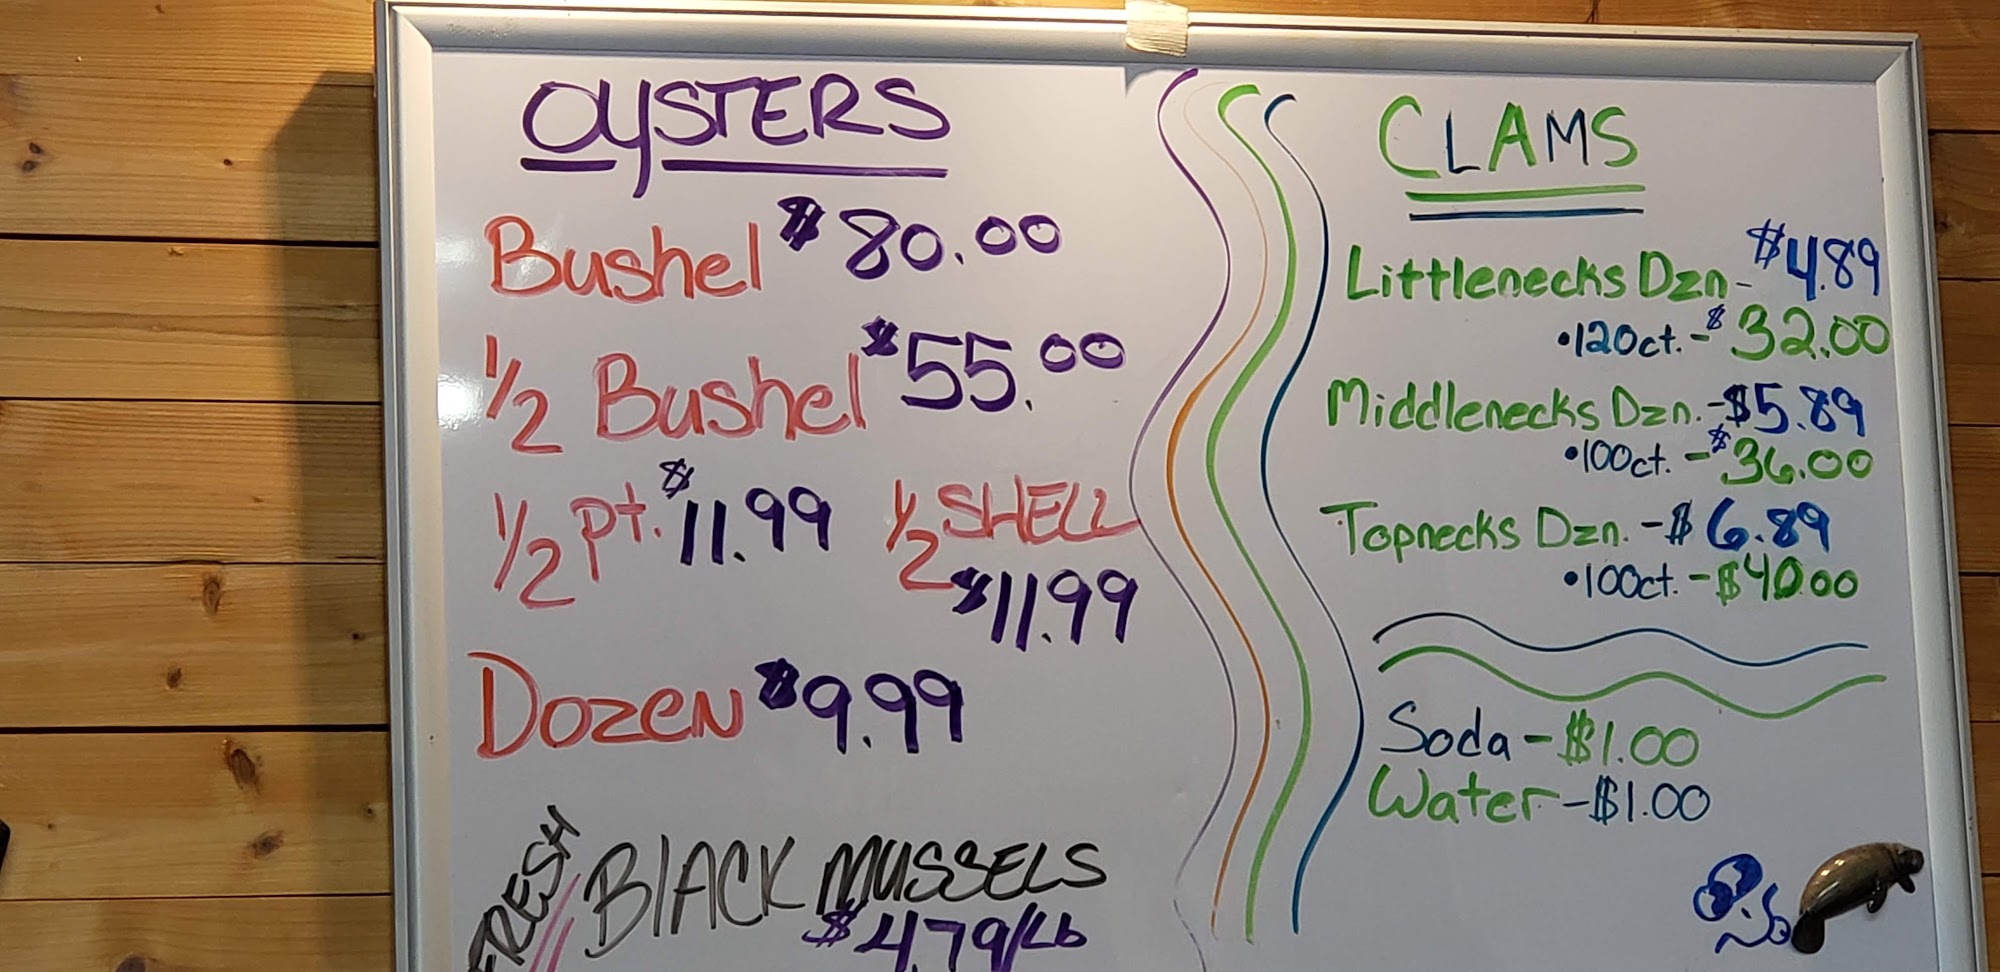 OYSTERS
Bushel $80.00
1/2 Bushel $55.00
1/2 pt. $11.99
1/2 SHELL
$11.99
DOZEN $9.99
FRESH
BLACK MUSSELS
$4.79/Lb
CLAMS
Littlenecks Dzn - $4.89
•120ct. - $32.00
Middlenecks Dzn. - $5.89
•100ct. - $36.00
Topnecks Dzn. - $6.89
•100ct. - $40.00
Soda - $1.00
Water - $1.00